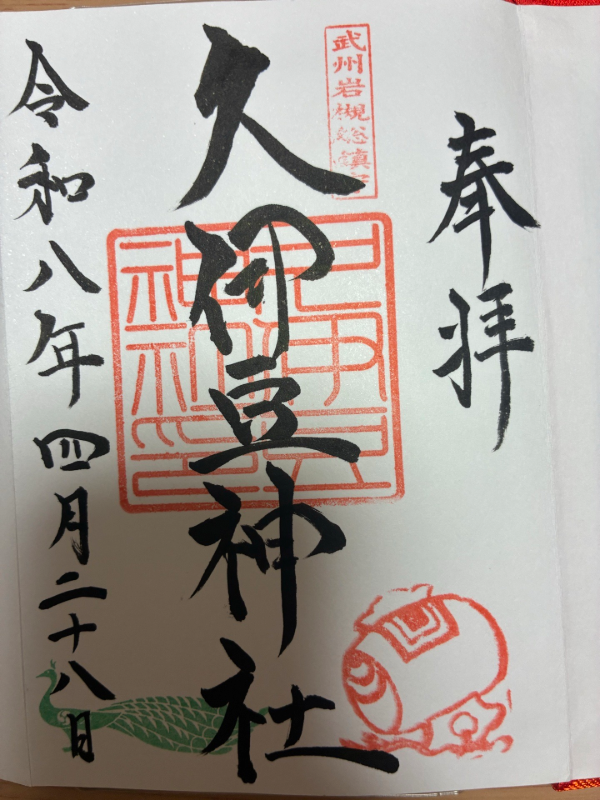 奉拝
武州岩槻総鎮守
久伊豆神社
令和八年四月二十八日